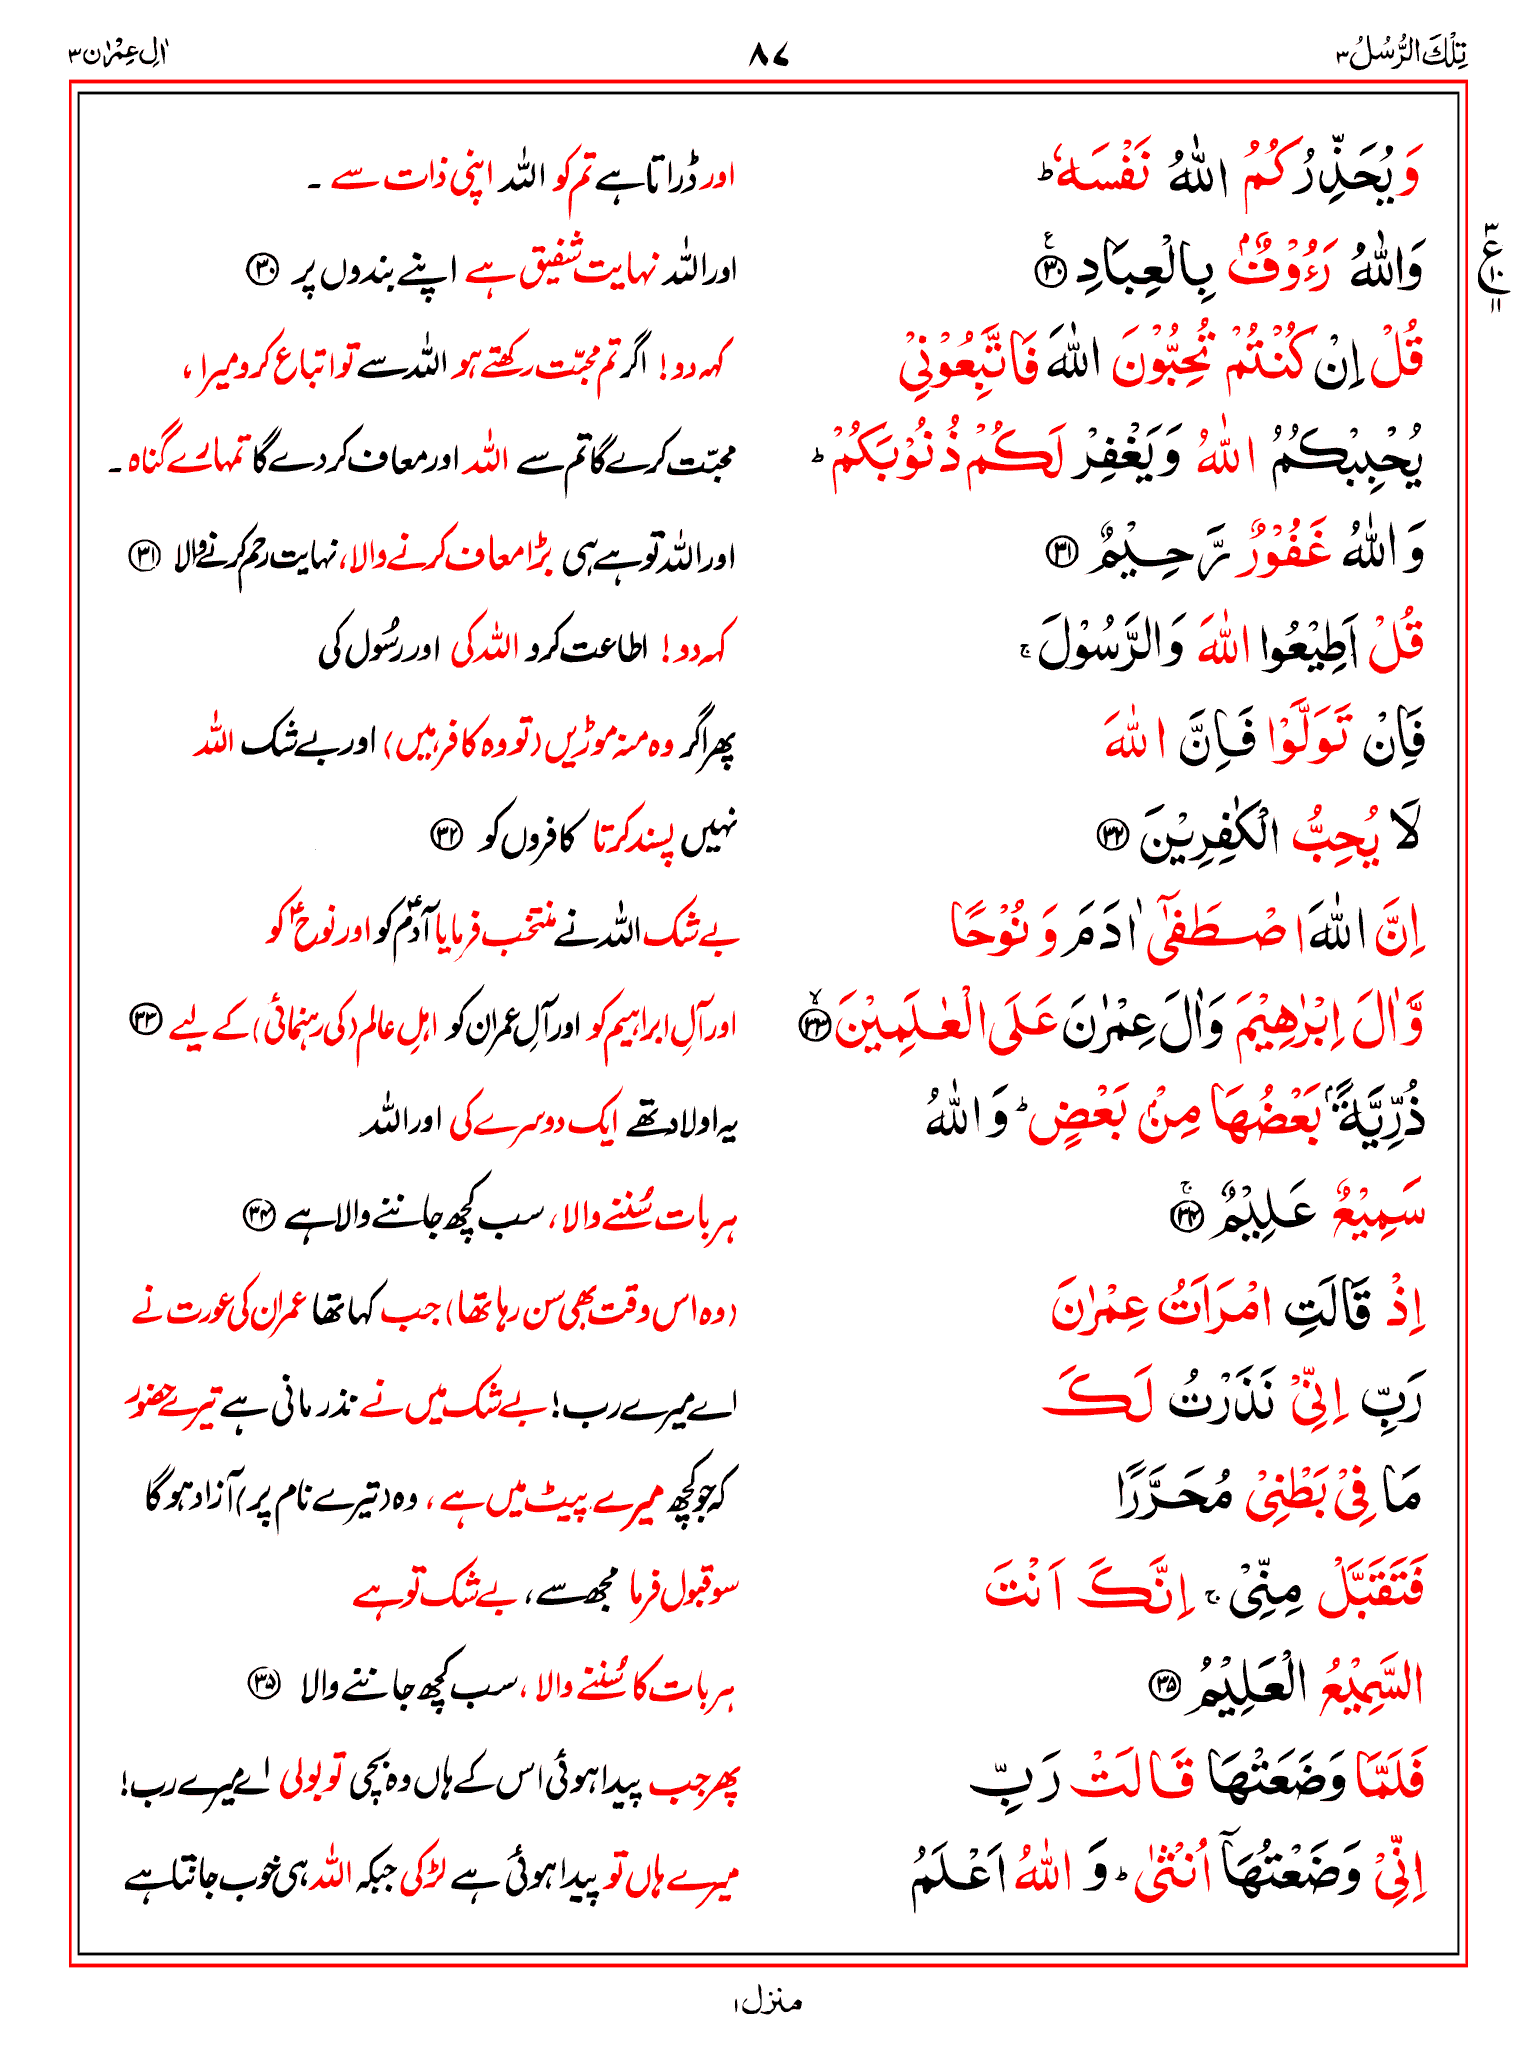 تِلْكَ الرُّسُلُ ۳
۸۷
اٰلِ عِمْرٰن ۳
وَيُحَذِّرُكُمُ اللّٰهُ نَفْسَهٗ ؕ
اور ڈراتا ہے تم کو اللہ اپنی ذات سے ۔
وَاللّٰهُ رَءُوْفٌۢ بِالْعِبَادِ ۳۰
اور اللہ نہایت شفیق ہے اپنے بندوں پر ۳۰
ع ۳ ۱۰ ۱۱
قُلْ اِنْ كُنْتُمْ تُحِبُّوْنَ اللّٰهَ فَاتَّبِعُوْنِيْ
کہہ دو! اگر تم محبّت رکھتے ہو اللہ سے تو اتباع کرو میرا،
يُحْبِبْكُمُ اللّٰهُ وَيَغْفِرْ لَكُمْ ذُنُوْبَكُمْ ؕ
محبّت کرے گا تم سے اللہ اور معاف کر دے گا تمہارے گناہ ۔
وَاللّٰهُ غَفُوْرٌ رَّحِيْمٌ ۳۱
اور اللہ تو ہے ہی بڑا معاف کرنے والا، نہایت رحم کرنے والا ۳۱
قُلْ اَطِيْعُوا اللّٰهَ وَالرَّسُوْلَ ۚ
کہہ دو! اطاعت کرو اللہ کی اور رسُول کی
فَاِنْ تَوَلَّوْا فَاِنَّ اللّٰهَ
پھر اگر وہ منہ موڑیں (تو وہ کافر ہیں) اور بے شک اللہ
لَا يُحِبُّ الْكٰفِرِيْنَ ۳۲
نہیں پسند کرتا کافروں کو ۳۲
اِنَّ اللّٰهَ اصْطَفٰٓى اٰدَمَ وَ نُوْحًا
بے شک اللہ نے منتخب فرمایا آدمؑ کو اور نوحؑ کو
وَّاٰلَ اِبْرٰهِيْمَ وَاٰلَ عِمْرٰنَ عَلَى الْعٰلَمِيْنَ ۙ ۳۳
اور آلِ ابراہیم کو اور آلِ عمران کو اہلِ عالم (کی رہنمائی) کے لیے ۳۳
ذُرِّيَّةًۢ بَعْضُهَا مِنْۢ بَعْضٍ ؕ وَ اللّٰهُ
یہ اولاد تھے ایک دوسرے کی اور اللہ
سَمِيْعٌ عَلِيْمٌ ۚ ۳۴
ہر بات سُننے والا، سب کچھ جاننے والا ہے ۳۴
اِذْ قَالَتِ امْرَاَتُ عِمْرٰنَ
(وہ اس وقت بھی سن رہا تھا) جب کہا تھا عمران کی عورت نے
رَبِّ اِنِّيْ نَذَرْتُ لَكَ
اے میرے رب! بے شک میں نے نذر مانی ہے تیرے حضور
مَا فِيْ بَطْنِيْ مُحَرَّرًا
کہ جو کچھ میرے پیٹ میں ہے ، وہ (تیرے نام پر) آزاد ہو گا
فَتَقَبَّلْ مِنِّيْ ۚ اِنَّكَ اَنْتَ
سو قبول فرما مجھ سے، بے شک تو ہے
السَّمِيْعُ الْعَلِيْمُ ۳۵
ہر بات کا سُننے والا ، سب کچھ جاننے والا ۳۵
فَلَمَّا وَضَعَتْهَا قَالَتْ رَبِّ
پھر جب پیدا ہوئی اس کے ہاں وہ بچی تو بولی اے میرے رب!
اِنِّيْ وَضَعْتُهَاۤ اُنْثٰى ؕ وَ اللّٰهُ اَعْلَمُ
میرے ہاں تو پیدا ہوئی ہے لڑکی جبکہ اللہ ہی خوب جانتا ہے
منزل ۱